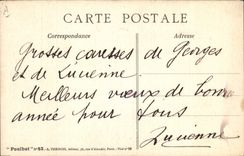 CARTE POSTALE
Correspondance
Adresse
Grosses caresses de Georges
et de Lucienne
Meilleurs vœux de bonne
année pour tous
Lucienne
"Poulbot" n° 93. - A. TERNOIS, éditeur, Paris.